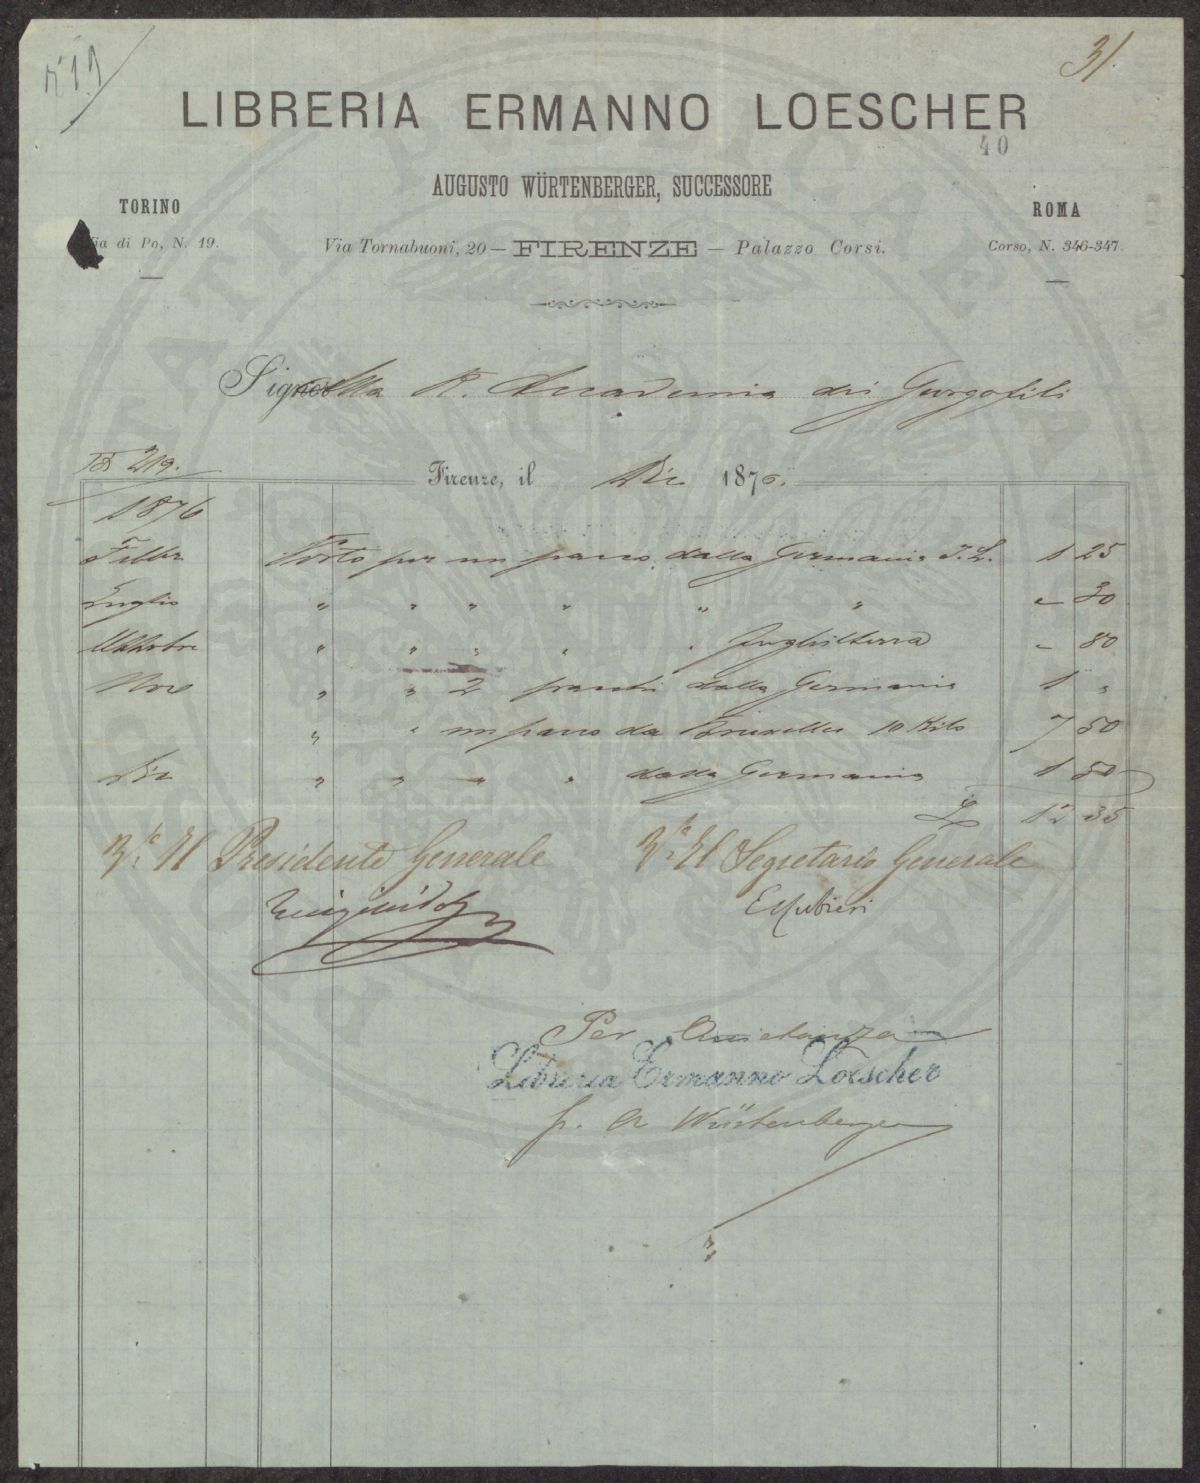 31.
LIBRERIA ERMANNO LOESCHER
40
AUGUSTO WÜRTENBERGER, SUCCESSORE
TORINO
Via di Po, N. 19.
Via Tornabuoni, 20 — FIRENZE — Palazzo Corsi.
ROMA
Corso, N. 346-347.
Signor Alla R. Accademia dei Georgofili
219.
Firenze, il Dic 1876.
1876
Febbr Porto per un pacco dalla Germania I. L. 1 25
Luglio " " " " " " - 30
Ottobre " " " " " Inghilterra - 80
Nov " " 2 pacchi dalla Germania 1 "
" " un pacco da Bruxelles 10 Kilo 7 50
Dic " " " " dalla Germania 1 50
L 12 35
Vo. Il Presidente Generale
Vo. Il Segretario Generale
Per Quietanza
Libreria Ermanno Loescher
p. A Würtenberger